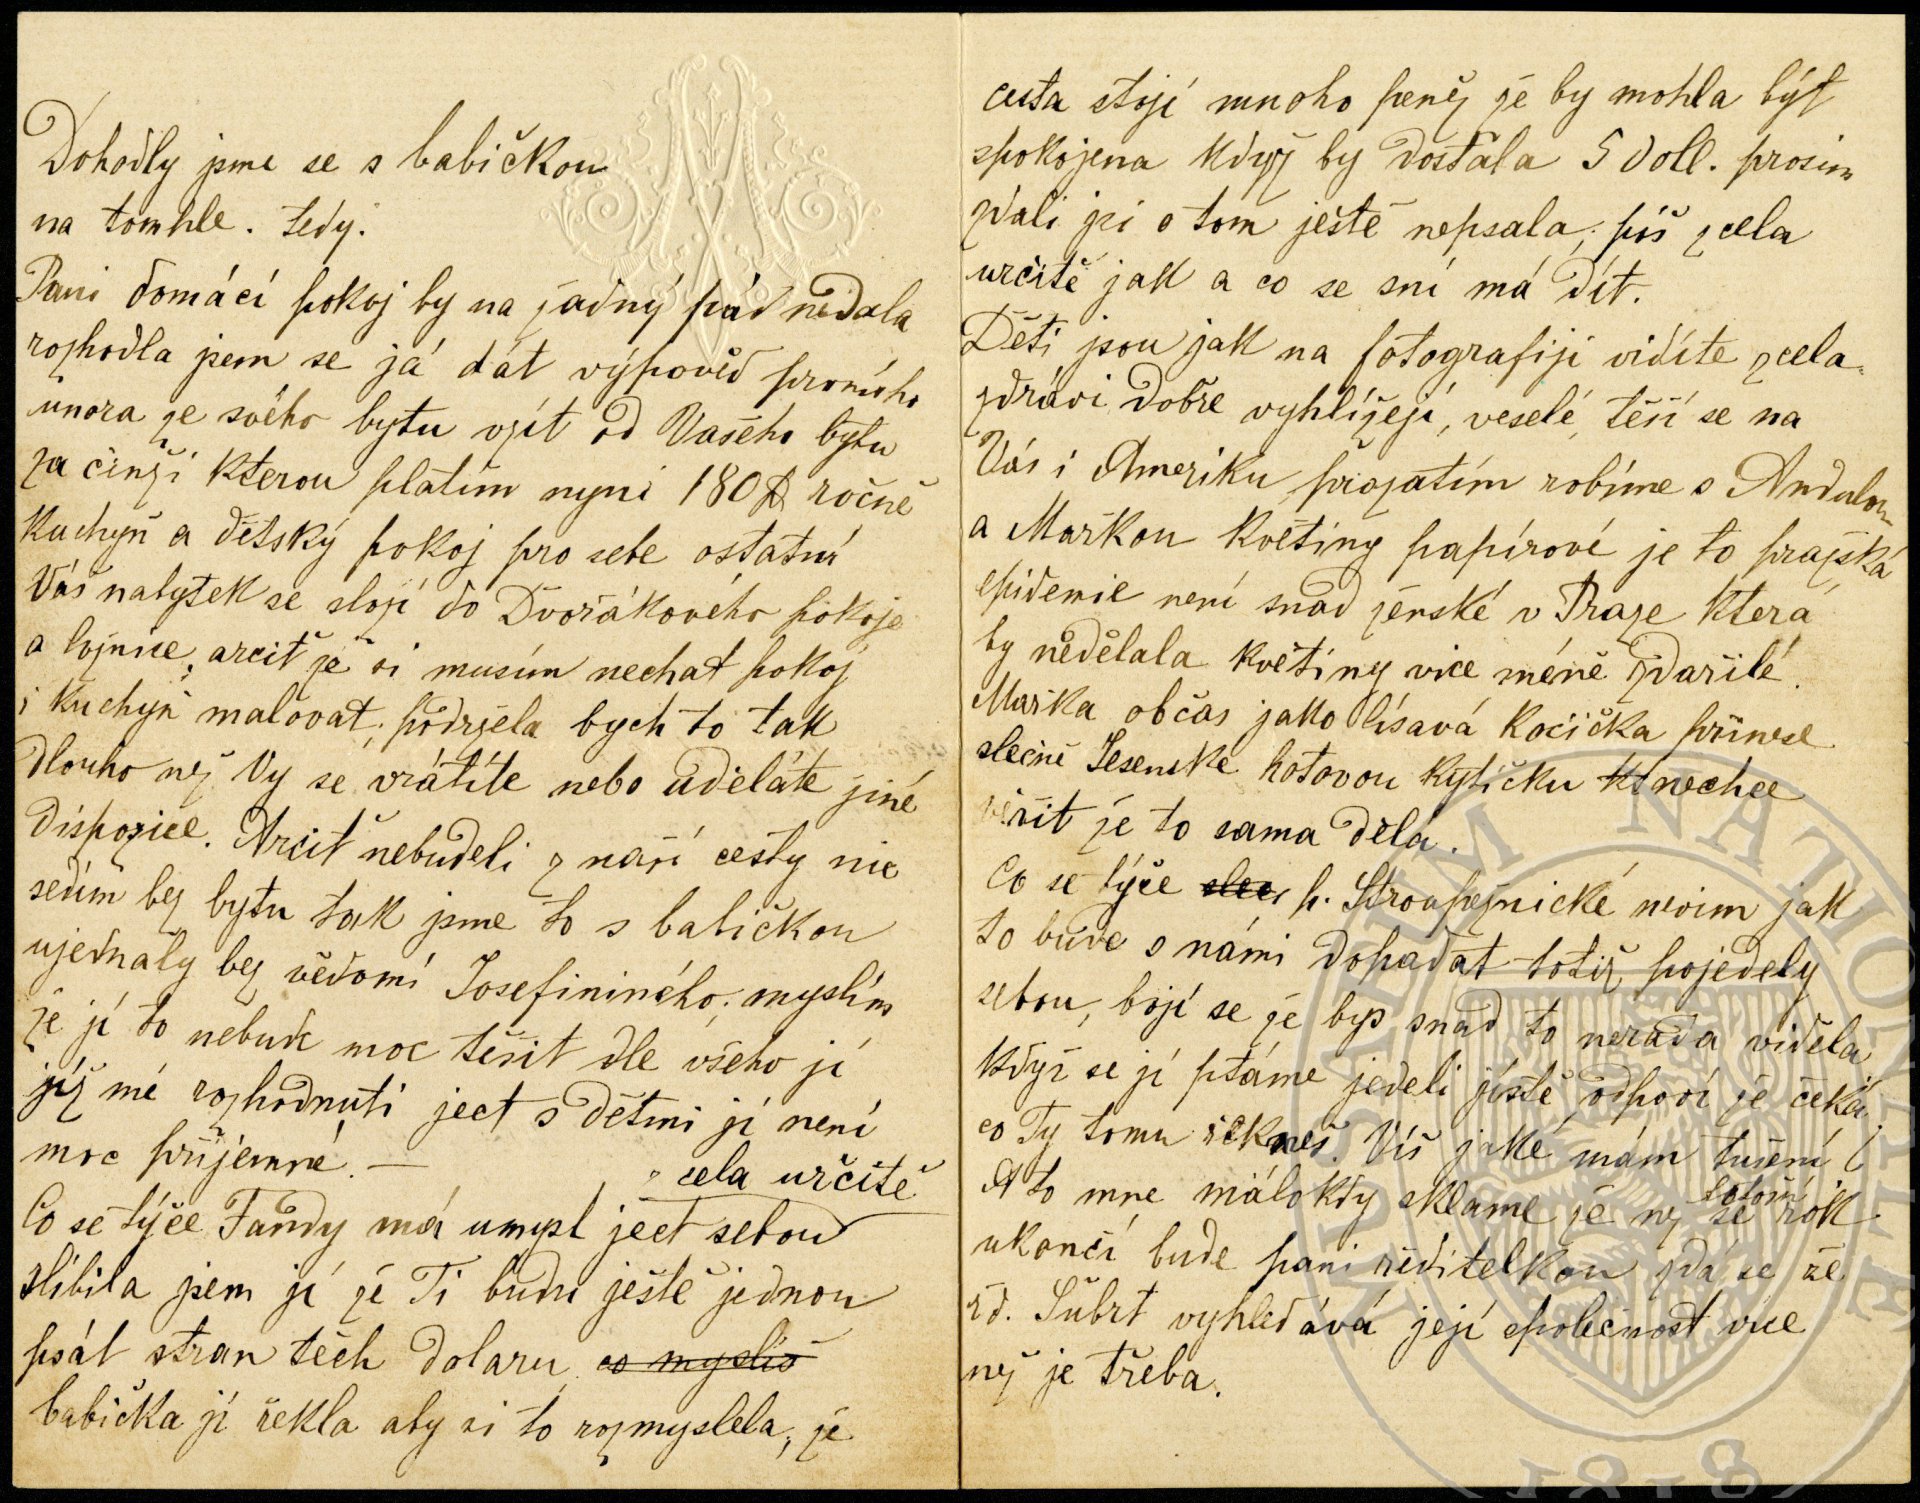 Dohodly jsme se s babičkou
na tomhle. tedy.
Pani domácí pokoj by na žadný pád nedala
rozhodla jsem se já dát výpověd prvního
unora ze svého bytu vzít od Vašeho bytu
za činži kterou platim nyni 180 ročně
Kuchyň a dětský pokoj pro sebe ostatní
Váš nabytek se složí do Dvořákového pokoje
a ložnice, arciť že si musím nechat pokoj
i kuchyň malovat, podržela bych to tak
dlouho než Vy se vrátíte nebo uděláte jiné
dispozice. Arciť nebudeli z naší cesty nic
sedím bez bytu tak jsme to s babičkou
ujednaly bez vědomí Josefininého; myslím
že jí to nebude moc těšit dle všeho jí
již mé rozhodnuti ject s dětmi jí není
moc příjemné. —
zcela určitě
Co se týče Fandy má umysl ject sebou
slibila jsem jí že Ti budu ještě jednou
psát stran těch dolaru, co myslíš
babička jí řekla aby si to rozmyslela, že
cesta stojí mnoho peněz že by mohla být
spokojena když by dostala 5 doll. prosim
zdali jsi o tom ještě nepsala, piš zcela
určitě jak a co se sní má dít.
Děti jsou jak na fotografiji vidíte zcela
zdrávi dobře vyhlížejí, veselé, těší se na
Vás i Ameriku prozatím robíme s Andulou
a Mařkou květiny papírové je to pražská
epidemie není snad ženské v Praze která
by nědělala květiny vice méně zdařilé.
Mařka občas jako lísavá kočička přinese
slečně Jesenske hotovou kytičku kt nechce
věřit že to sama dělá.
Co se týče slec p. Stroupežnické nevim jak
to bude s námi dopadat totiž pojedely
sebou, bojí se že bys snad to nerada viděla
když se jí ptáme jedeli jistě odpoví že čeká
co Ty tomu řekneš. Víš jaké mám tušení?
A to mne málokdy sklame že než se rok
totoší
ukončí bude pani ředitelkou zdá se že
řd. Šubrt vyhledává její společnost vice
než je třeba.
MUSAEUM NATIONALE
1818